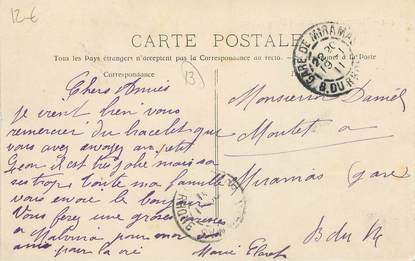 12-6
CARTE POSTALE
Tous les Pays étrangers n'acceptent pas la Correspondance au recto à la Poste
Correspondance
13
GARE DE MIRAMAS
B. DU RH
Chers Amies
je vient bien vous
remercier du bracelet que
vous avez envoyer au petit
il est tres jolie mais sa
ses trop toute ma famille
vous envoie le bonjour
Vous ferez une grosse
a Malvina pour moi
pour la vie
Marie
Monsieur Daniel
Moutet a
Miramas (gare
B du R